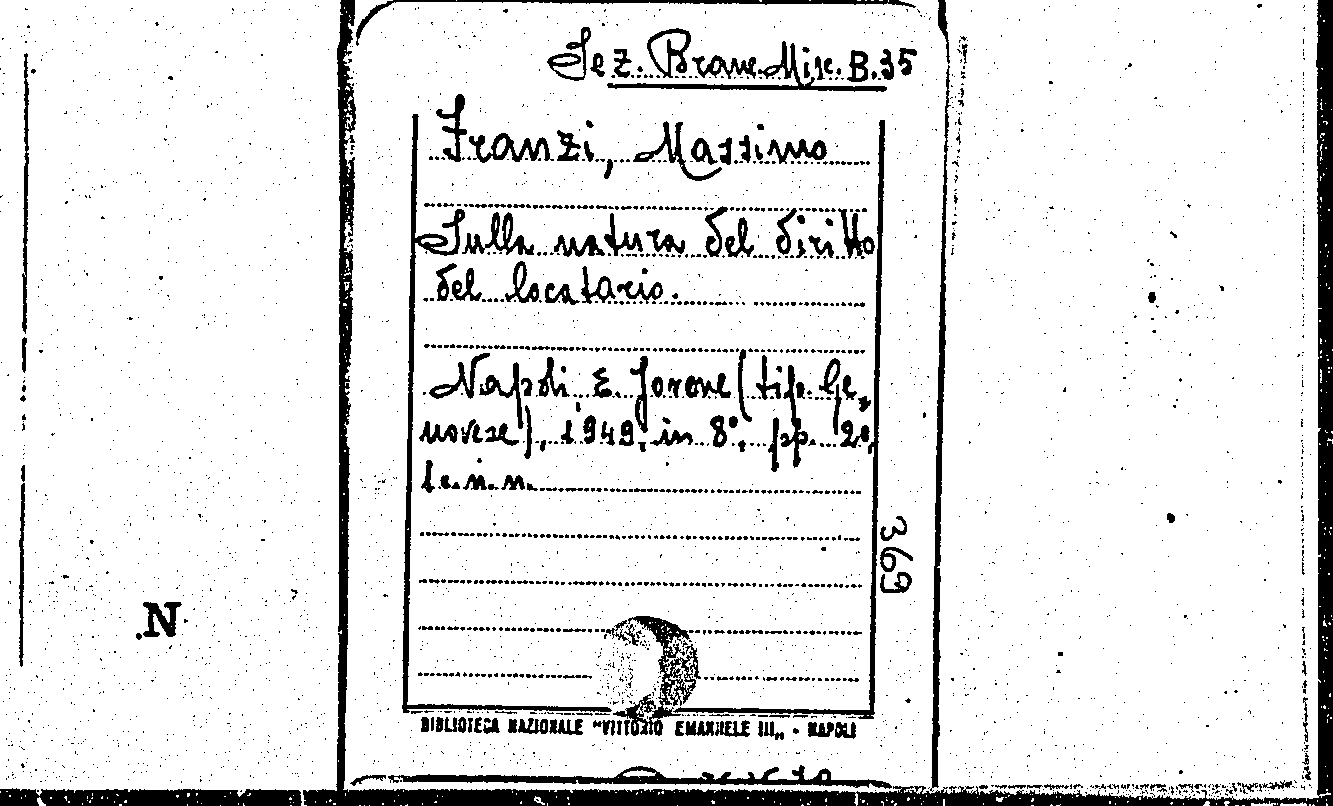 Sez. Branc. Misc. B.35
Franzi, Massimo
Sulla natura del diritto
del locatario.
Napoli, E. Jovene (tip. Ge=
novese), 1949, in 8°, pp. 20,
1 c. n. n.
369
N
BIBLIOTECA NAZIONALE "VITTORIO EMANUELE III„ - NAPOLI